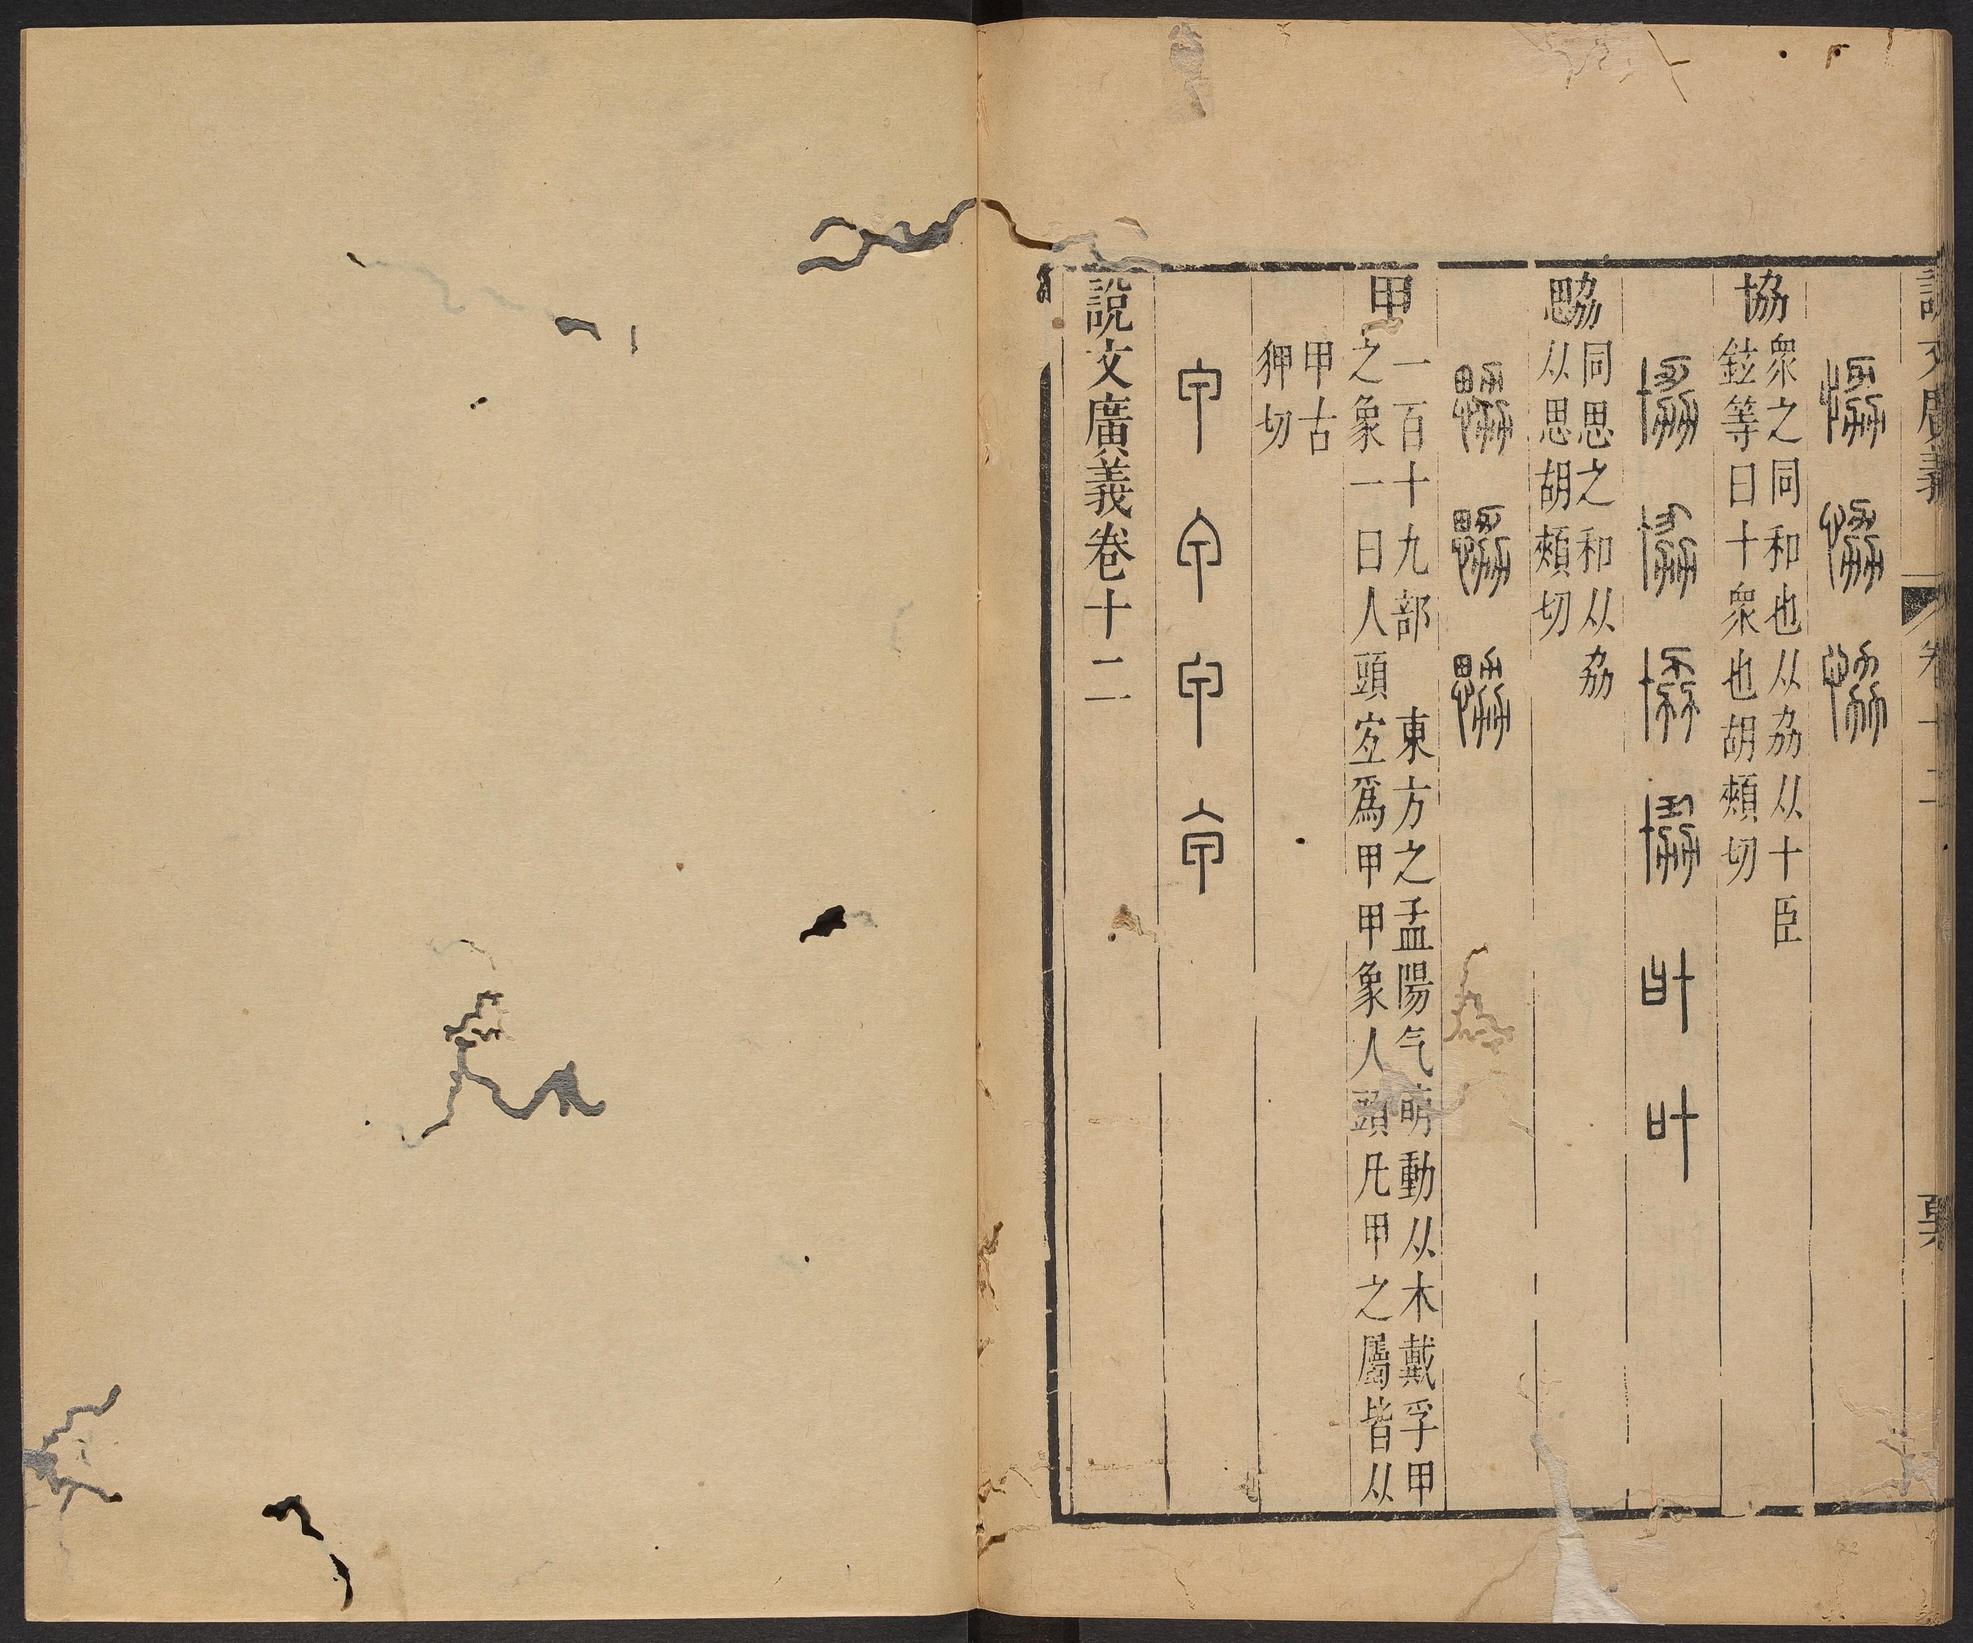 說文廣義 卷十二
恊 恊 恊
協 衆之同和也从劦从十臣
鉉等曰十衆也胡頰切
協 協 協 協 叶 叶
勰 同思之和从劦
从思胡頰切
勰 勰 勰
甲 一百十九部 東方之孟陽气萌動从木戴孚甲
之象一曰人頭宐爲甲甲象人頭凡甲之屬皆从
甲古
狎切
甲 甲 甲 甲
說文廣義卷十二